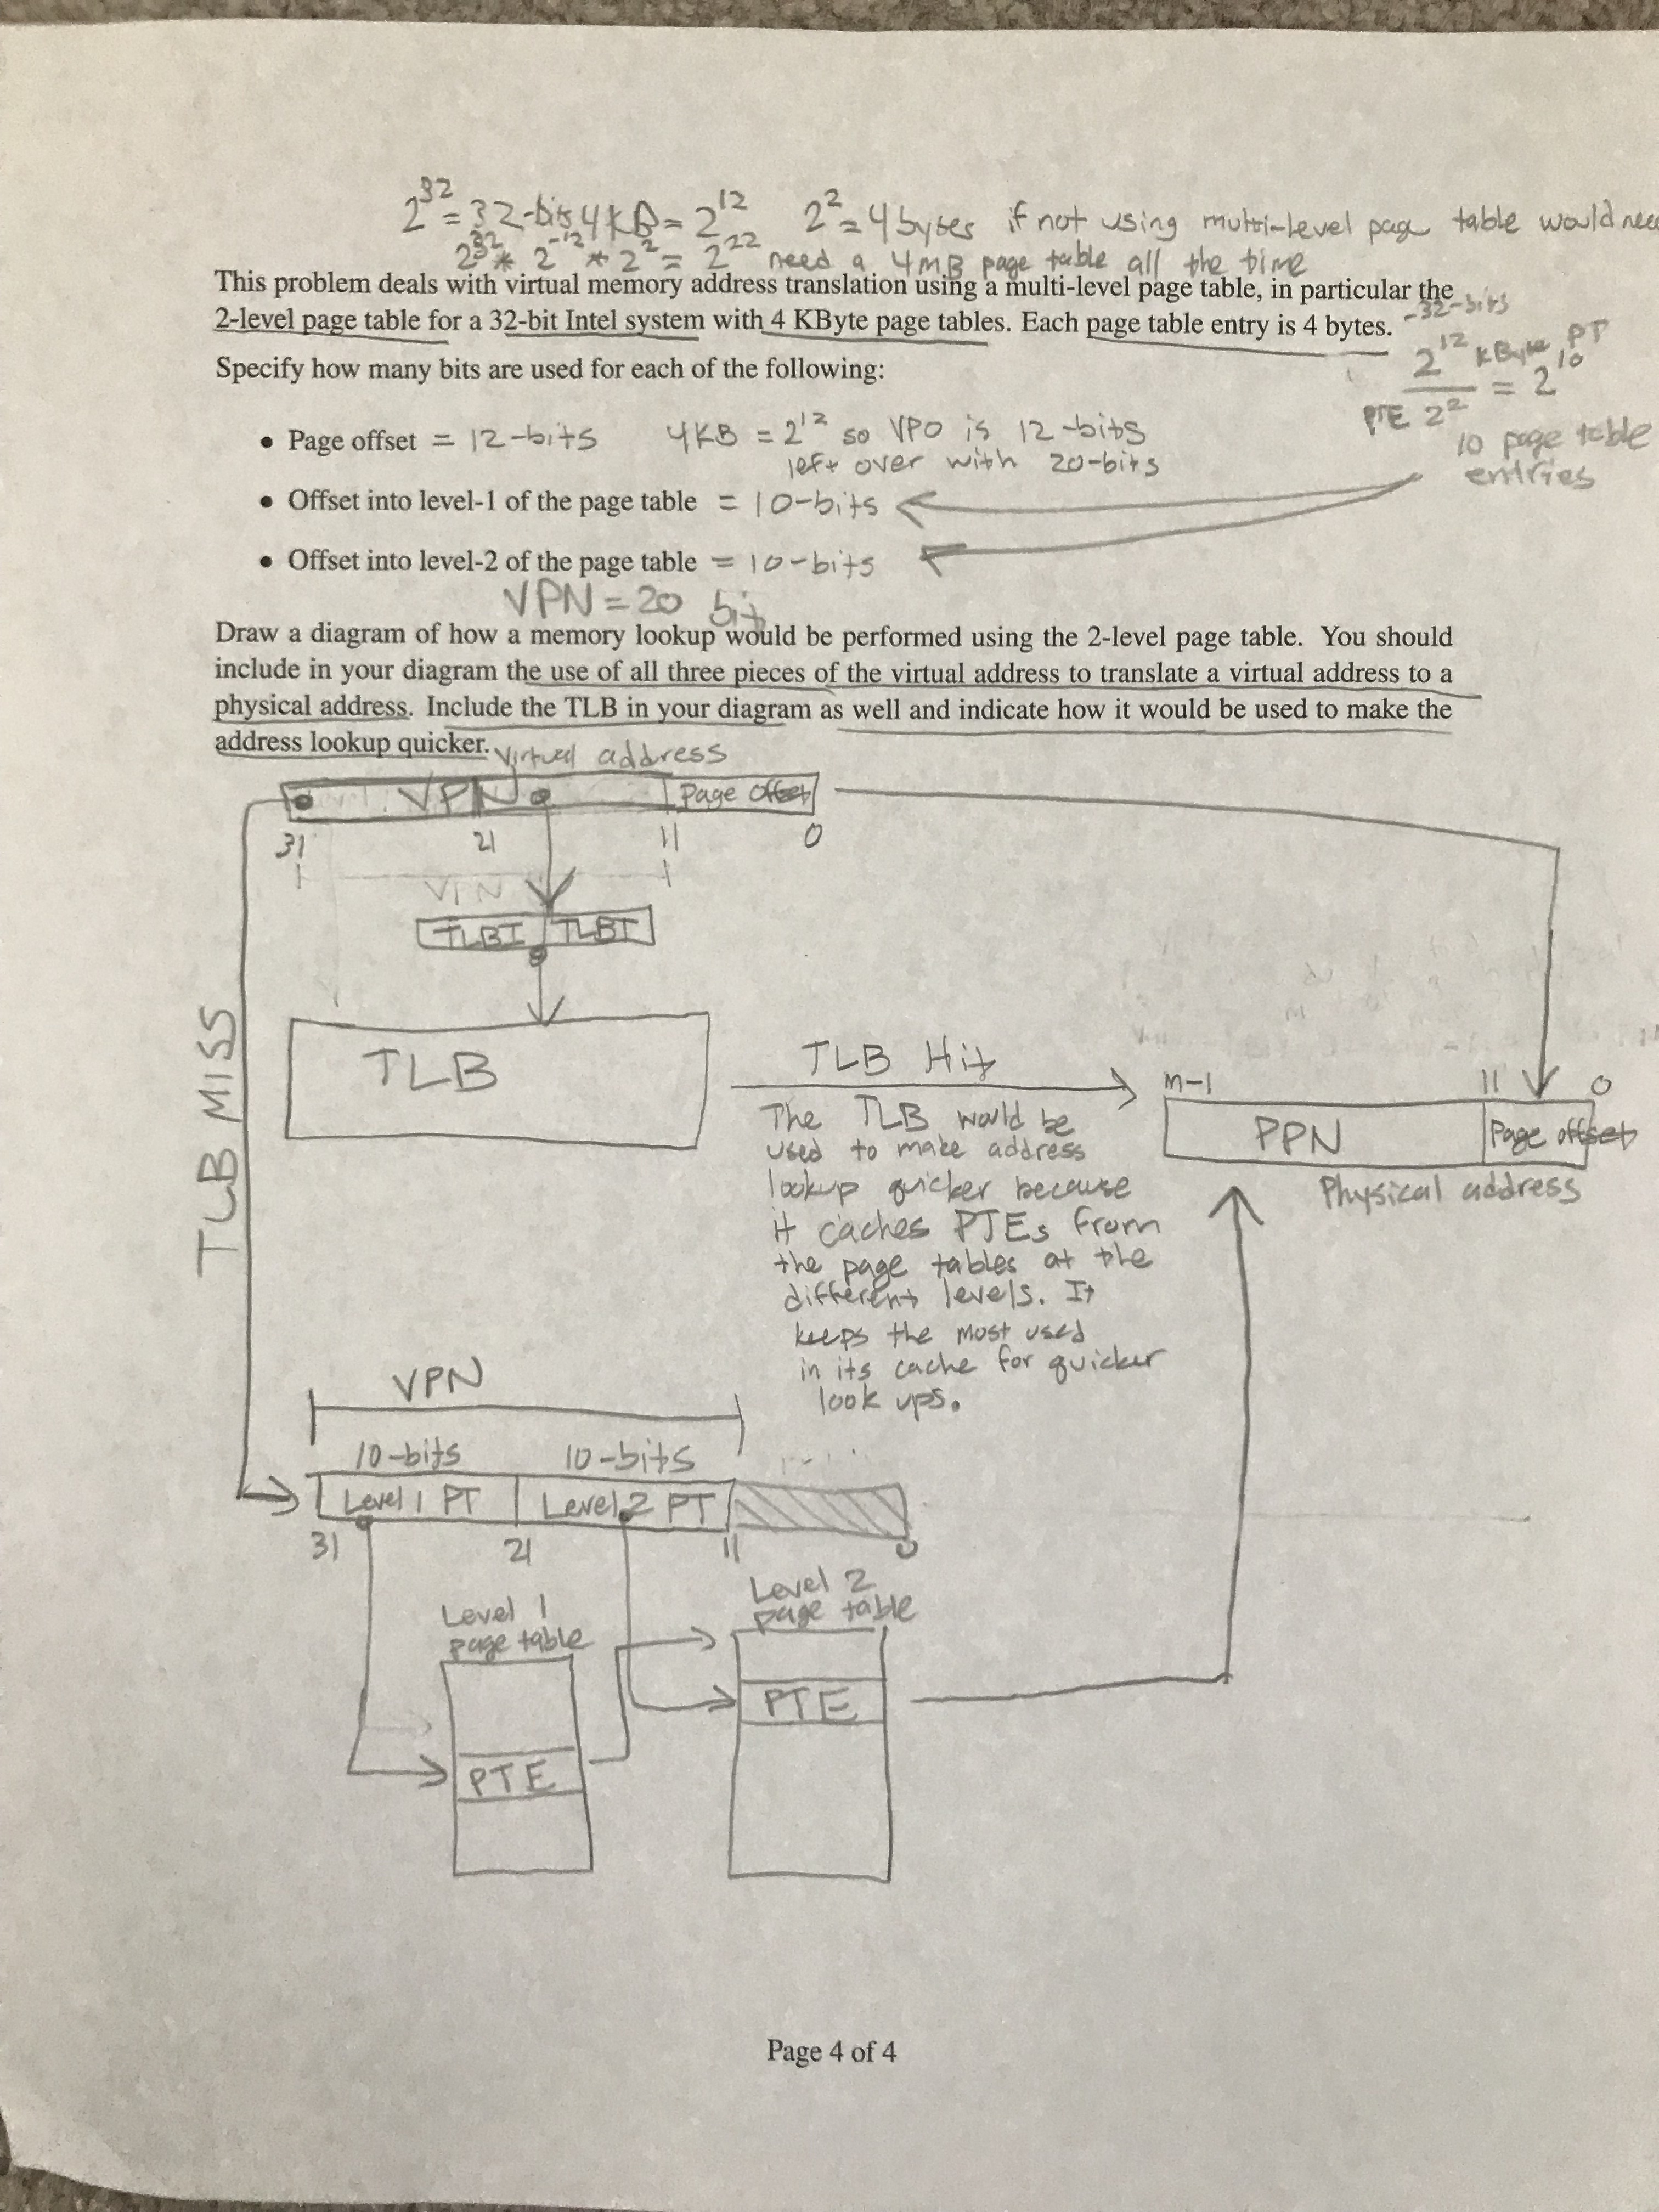 2^32 = 32-bits 4KB = 2^12 2^2 = 4 bytes if not using multi-level page table would need
2^32 * 2^-12 * 2^2 = 2^22 need a 4MB page table all the time
This problem deals with virtual memory address translation using a multi-level page table, in particular the
2-level page table for a 32-bit Intel system with 4 KByte page tables. Each page table entry is 4 bytes.
-32-bits
2^12 KByte PT
PTE 2^2 = 2^10
10 page table
entries
Specify how many bits are used for each of the following:
• Page offset = 12-bits 4KB = 2^12 so VPO is 12-bits
left over with 20-bits
• Offset into level-1 of the page table = 10-bits
• Offset into level-2 of the page table = 10-bits
VPN = 20 bit
Draw a diagram of how a memory lookup would be performed using the 2-level page table. You should
include in your diagram the use of all three pieces of the virtual address to translate a virtual address to a
physical address. Include the TLB in your diagram as well and indicate how it would be used to make the
address lookup quicker.
Virtual address
VPN Page Offset
31 21 11 0
VPN
TLBI TLBT
TLB
TLB MISS
TLB Hit
The TLB would be
used to make address
lookup quicker because
it caches PTEs from
the page tables at the
different levels. It
keeps the most used
in its cache for quicker
look ups.
m-1 11 0
PPN Page offset
Physical address
VPN
10-bits 10-bits
Level 1 PT Level 2 PT
31 21 11 0
Level 1
page table
PTE
Level 2
page table
PTE
Page 4 of 4